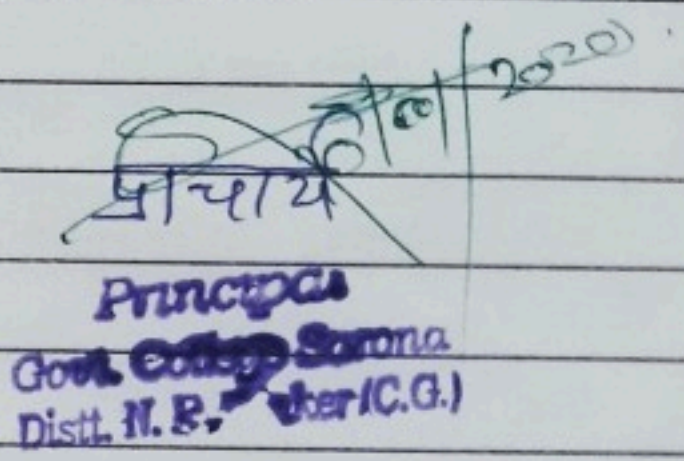 2020
प्राचार्य
Principal
Govt. College Sarona
Distt. N. B. Kanker (C.G.)